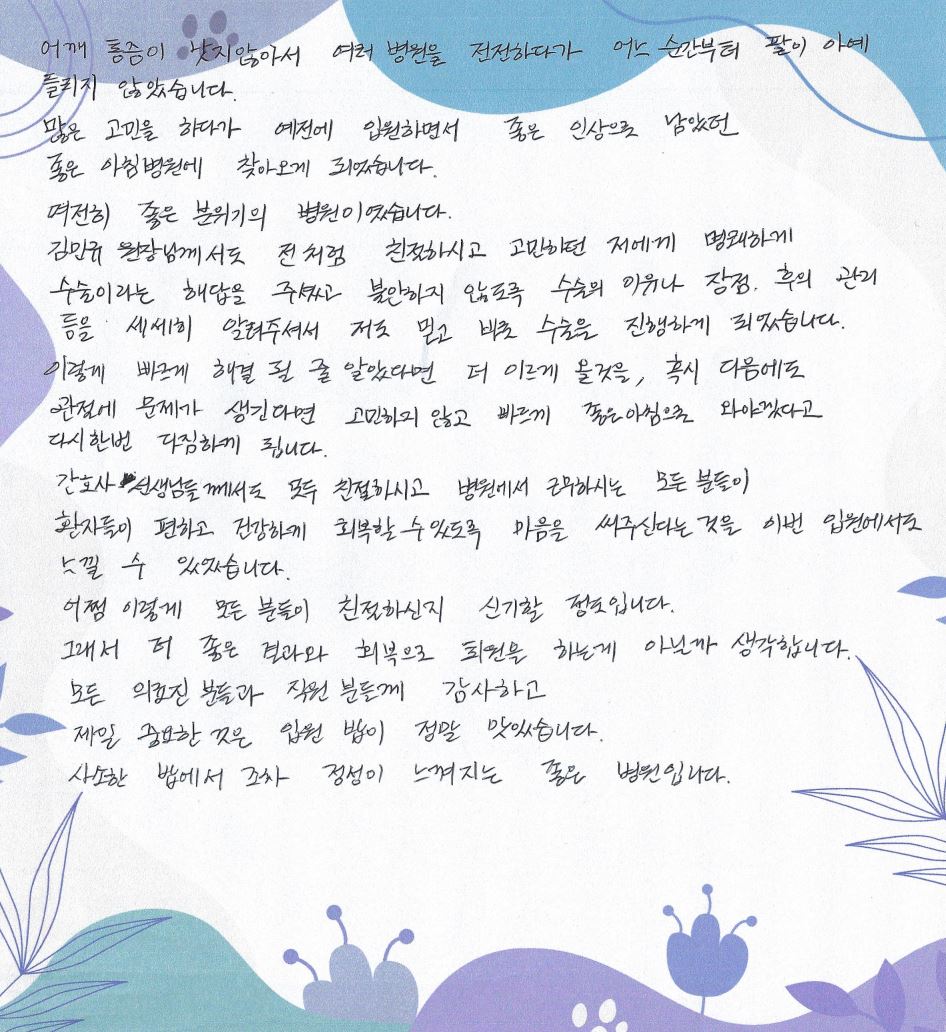 어깨 통증이 낫지않아서 여러 병원을 전전하다가 어느 순간부터 팔이 아예
들리지 않았습니다.
많은 고민을 하다가 예전에 입원하면서 좋은 인상으로 남았던
좋은 아침병원에 찾아오게 되었습니다.
여전히 좋은 분위기의 병원이였습니다.
김민규 원장님께서도 전처럼 친절하시고 고민하던 저에게 명쾌하게
수술이라는 해답을 주셨고 불안하지 않도록 수술의 이유나 장점. 후의 관리
등을 세세히 알려주셔서 저도 믿고 바로 수술을 진행하게 되었습니다.
이렇게 빠르게 해결 될 줄 알았다면 더 이르게 올것을, 혹시 다음에도
관절에 문제가 생긴다면 고민하지 않고 빠르게 좋은아침으로 와야겠다고
다시한번 다짐하게 됩니다.
간호사 선생님들께서도 모두 친절하시고 병원에서 근무하시는 모든 분들이
환자들이 편하고 건강하게 회복할 수 있도록 마음을 써주신다는 것을 이번 입원에서도
느낄 수 있었습니다.
어쩜 이렇게 모든 분들이 친절하신지 신기할 정도입니다.
그래서 더 좋은 결과와 회복으로 퇴원을 하는게 아닐까 생각합니다.
모든 의료진 분들과 직원 분들께 감사하고
제일 중요한 것은 입원 밥이 정말 맛있습니다.
사소한 밥에서 조차 정성이 느껴지는 좋은 병원입니다.